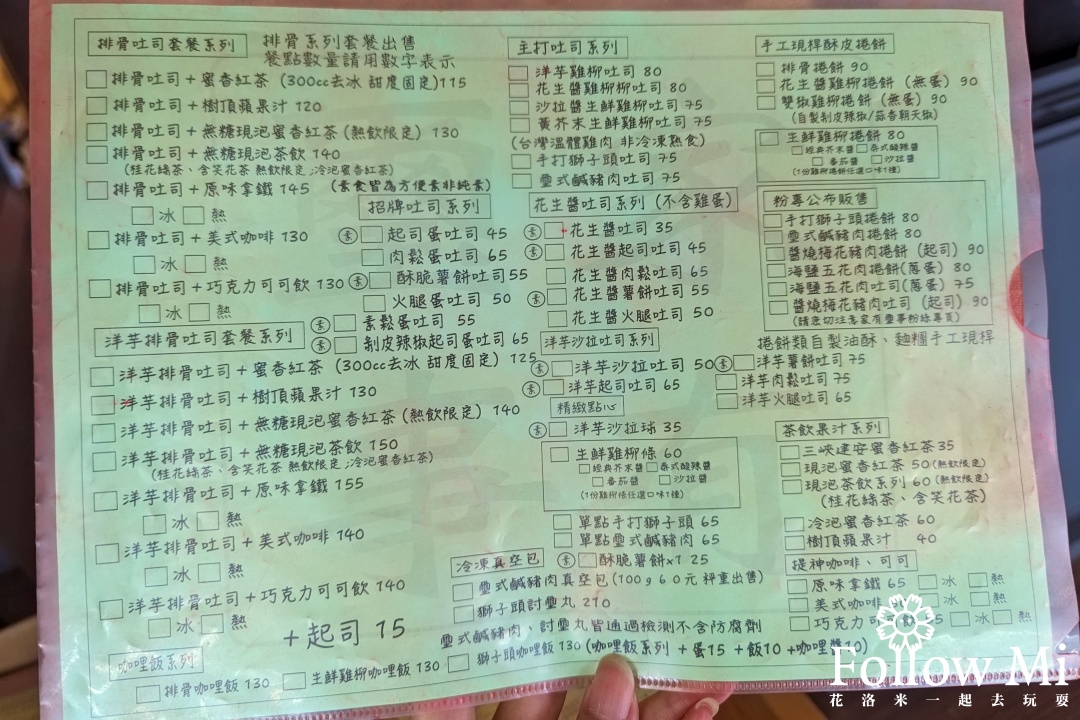 排骨吐司套餐系列
排骨系列套餐出售
餐點數量請用數字表示
排骨吐司+蜜香紅茶(300cc去冰 甜度固定)115
排骨吐司+樹頂蘋果汁 120
排骨吐司+無糖現泡蜜香紅茶(熱飲限定) 130
排骨吐司+無糖現泡茶飲 140
(桂花綠茶、含笑花茶 熱飲限定;冷泡蜜香紅茶)
排骨吐司+原味拿鐵 145 (素食皆為方便素非純素)
冰 熱
排骨吐司+美式咖啡 130
冰 熱
排骨吐司+巧克力可可飲 130
冰 熱
招牌吐司系列
素 起司蛋吐司 45
肉鬆蛋吐司 65
素 酥脆薯餅吐司 55
火腿蛋吐司 50
素 素鬆蛋吐司 55
素 剝皮辣椒起司蛋吐司 65
洋芋排骨吐司套餐系列
洋芋排骨吐司+蜜香紅茶(300cc去冰 甜度固定) 125
洋芋排骨吐司+樹頂蘋果汁 130
洋芋排骨吐司+無糖現泡蜜香紅茶(熱飲限定) 140
洋芋排骨吐司+無糖現泡茶飲 150
(桂花綠茶、含笑花茶 熱飲限定;冷泡蜜香紅茶)
洋芋排骨吐司+原味拿鐵 155
冰 熱
洋芋排骨吐司+美式咖啡 140
冰 熱
洋芋排骨吐司+巧克力可可飲 140
冰 熱
+起司 15
主打吐司系列
洋芋雞柳吐司 80
花生醬雞柳柳吐司 80
沙拉醬生鮮雞柳吐司 75
黃芥末生鮮雞柳吐司 75
(台灣溫體雞肉 非冷凍熟食)
手打獅子頭吐司 75
疊式鹹豬肉吐司 75
花生醬吐司系列(不含雞蛋)
素 花生醬吐司 35
素 花生醬起司吐司 45
花生醬肉鬆吐司 65
素 花生醬薯餅吐司 55
花生醬火腿吐司 50
洋芋沙拉吐司系列
素 洋芋沙拉吐司 50
素 洋芋起司吐司 65
素 洋芋薯餅吐司 75
洋芋肉鬆吐司 75
洋芋火腿吐司 65
精緻點心
素 洋芋沙拉球 35
生鮮雞柳條 60
經典芥末醬 泰式酸辣醬
番茄醬 沙拉醬
(1份雞柳條任選口味1種)
單點手打獅子頭 65
單點疊式鹹豬肉 65
素 酥脆薯餅x1 25
冷凍真空包
疊式鹹豬肉真空包(100g60元 秤重出售)
獅子頭討疊丸 210
疊式鹹豬肉、討疊丸皆通過檢測不含防腐劑
手工現桿酥皮捲餅
排骨捲餅 90
花生醬雞柳捲餅(無蛋) 90
雙椒雞柳捲餅(無蛋) 90
(自製剝皮辣椒/蒜香朝天椒)
生鮮雞柳捲餅 80
經典芥末醬 泰式酸辣醬
番茄醬 沙拉醬
(1份雞柳捲餅任選口味1種)
粉專公布販售
手打獅子頭捲餅 80
疊式鹹豬肉捲餅 80
醬燒梅花豬肉捲餅(起司) 90
海鹽五花肉捲餅(蔥蛋) 80
海鹽五花肉吐司(蔥蛋) 75
醬燒梅花豬肉吐司(起司) 90
捲餅類自製油酥、麵糰手工現桿
茶飲果汁系列
三峽建安蜜香紅茶 35
現泡蜜香紅茶 50(熱飲限定)
現泡茶飲系列 60(熱飲限定)
(桂花綠茶、含笑花茶)
冷泡蜜香紅茶 60
樹頂蘋果汁 40
提神咖啡、可可
原味拿鐵 65 冰 熱
美式咖啡 冰 熱
巧克力可可飲 冰 熱
咖哩飯系列
排骨咖哩飯 130
生鮮雞柳咖哩飯 130
獅子頭咖哩飯 130 (咖哩飯系列 +蛋15 +飯10 +咖哩醬10)
Follow Mi
花洛米一起去玩耍